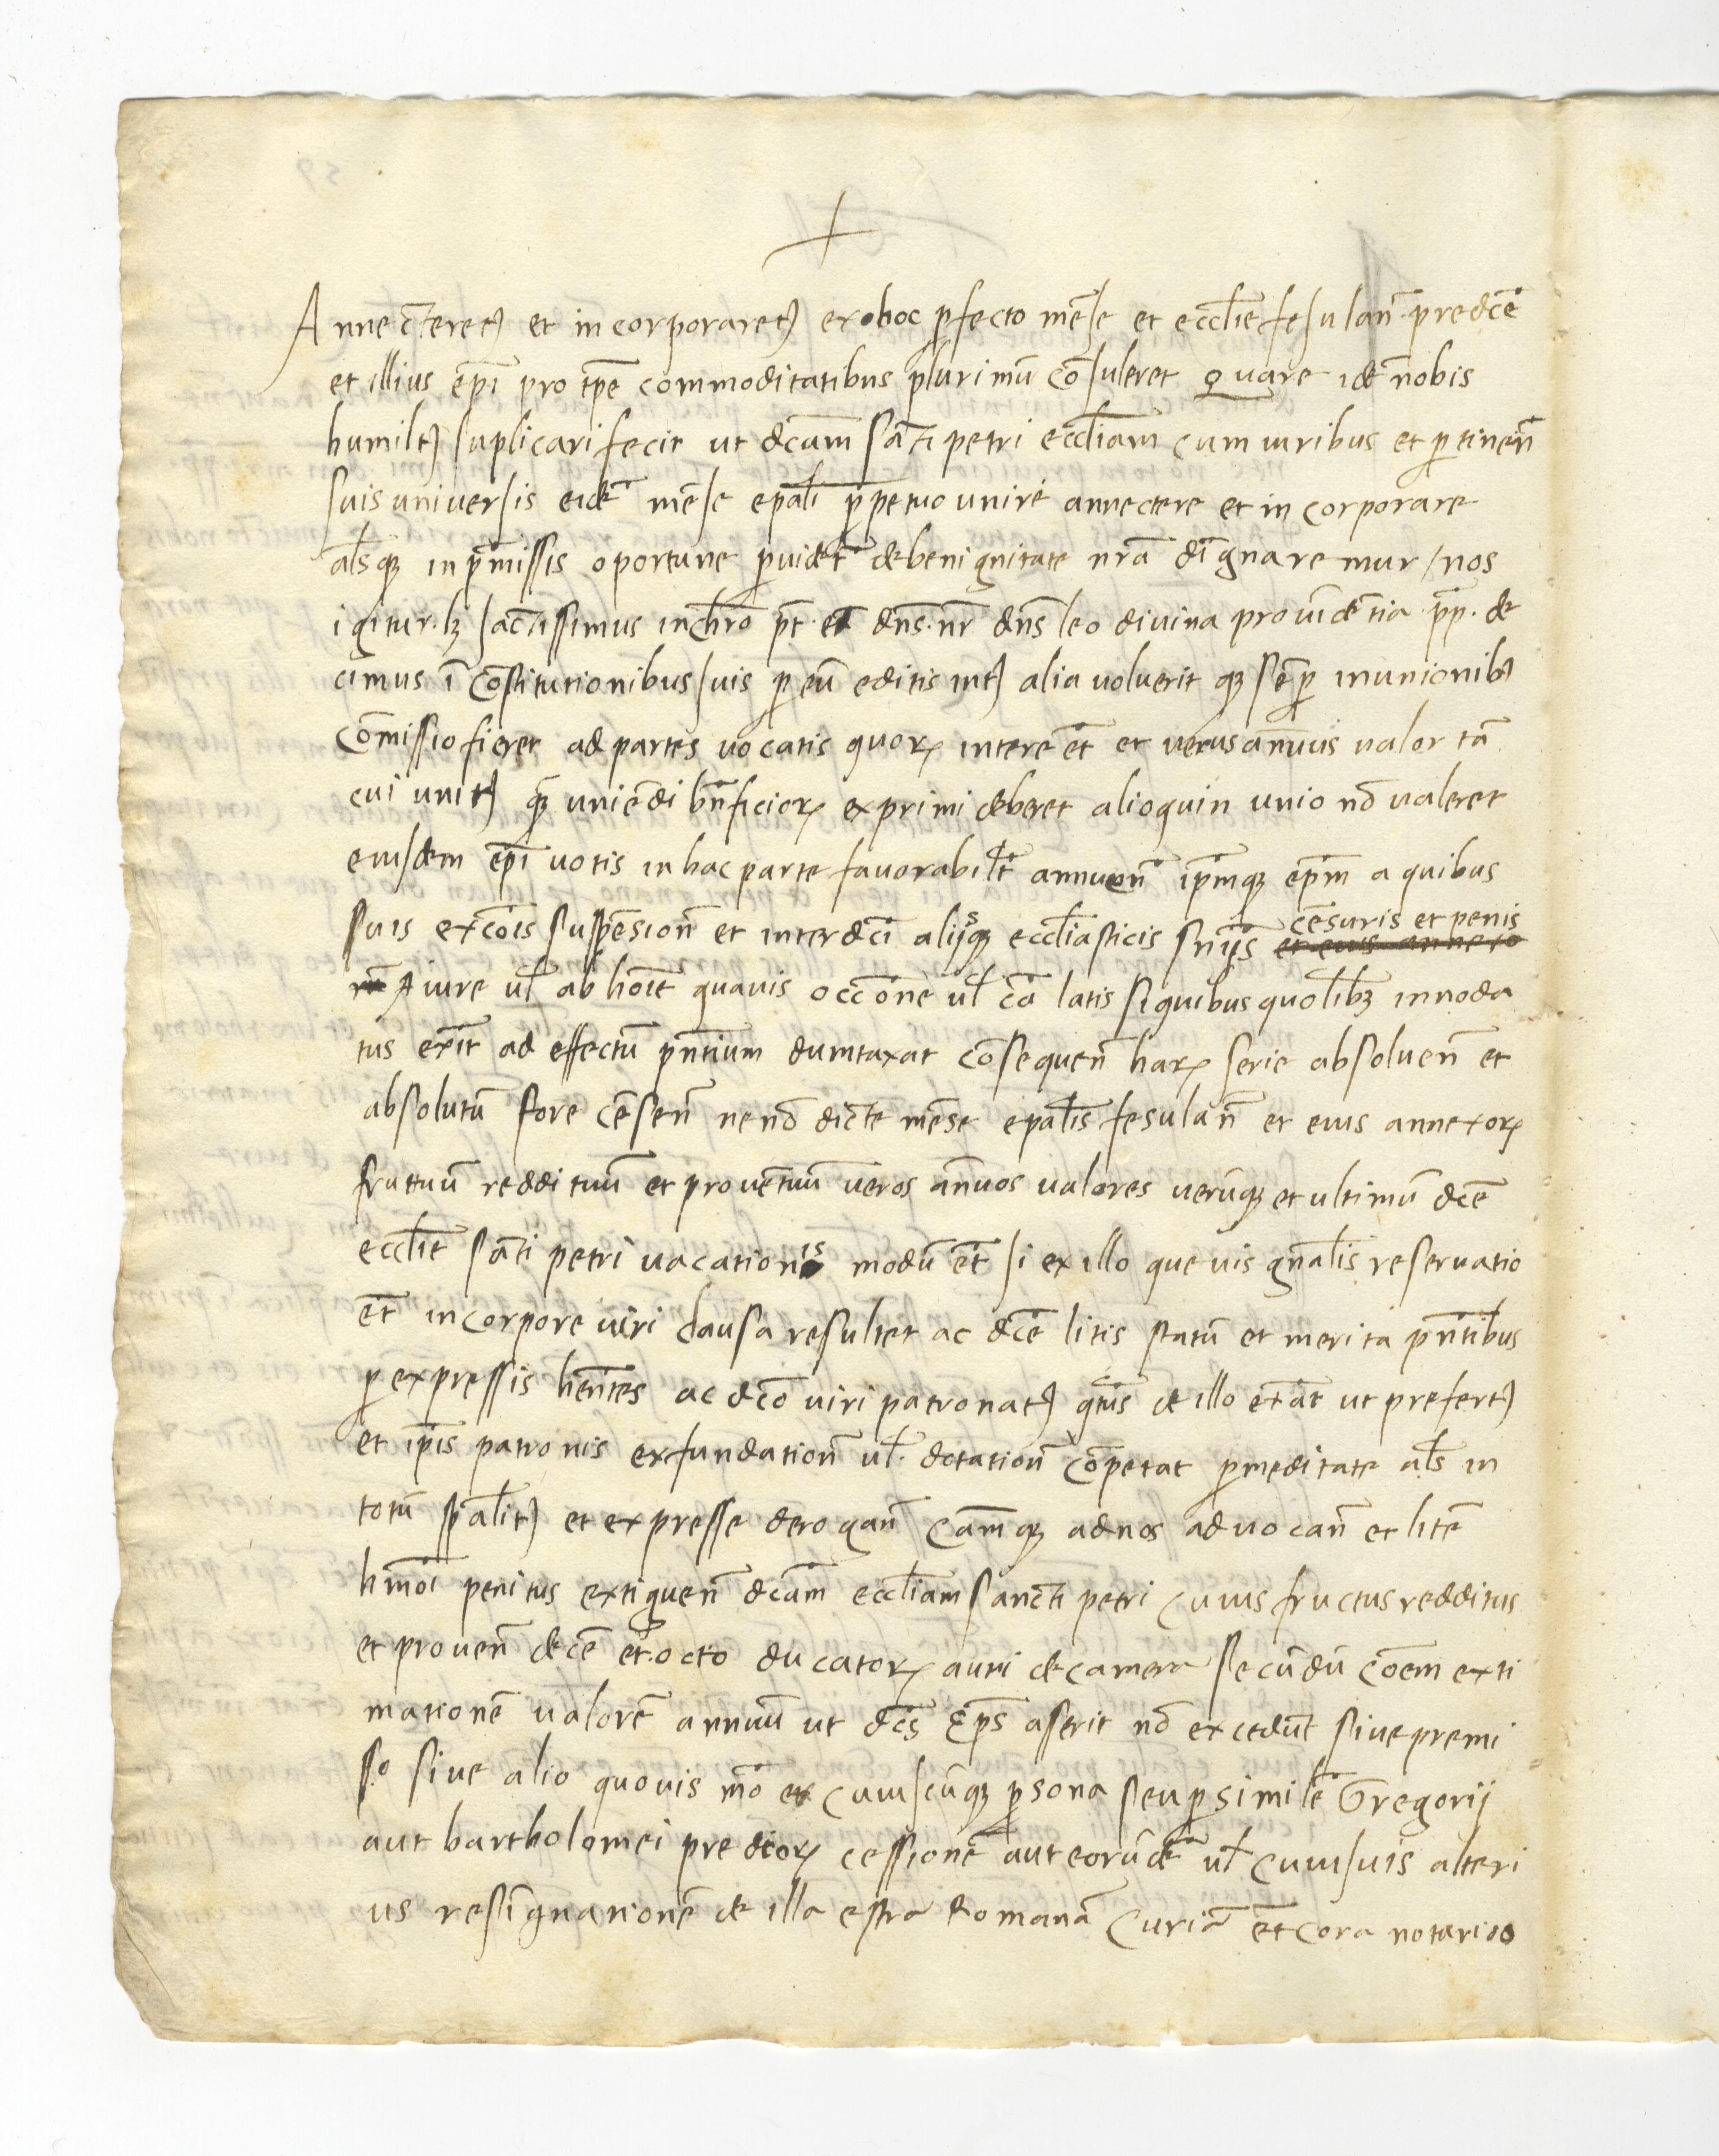 Annectereter et incorporareter ex hoc profecto mēse et eccl̄ie fesulan̄ predcē
et illius ep̄i pro tpē commoditatibus plurimū cōsuleret Quare idē nobis
humilr̄ suplicari fecit ut dcām sāti petri eccl̄iam cum iuribus et ptinen̄
suis universis eidē mēse epali ̄ ppetuo unire annectere et incorporare
als̄qꝫ in pmissis oportune pvidē de benignitate nrā dignaremur / nos
igitur. lꝫ sactissimus in chr̄o pt̄. et dn̄s. nr̄ dn̄s leo divina providētia pp̄. de
cimus ī cōstitutionibus suis p eū editis intꝫ alia voluerit qꝫ sēp in unionibꝫ
cōmissio fieret ad partes vocatis quorꝝ intereēt et verus annuus valor tā
cui unitꝫ qꝫ uniēdi bn̄ficiorꝝ exprimi deberet alioquin unio nō valeret
eiusdem ep̄i votis in hac parte favorabilr̄ annuen̄ ip̄mqꝫ ep̄m a quibus
suis excōis suspēsion̄ et interdci ̄ alijsqꝫ eccl̄iasticis sn̄ijs cēsuris et penis et eius annexo
rū A iure ul̄ ab hoīe quavis occōne ul̄ cā latis si quibus quolibꝫ innoda
tus exīt ad effectū pn̄tium dumtaxat cōsequen̄ harꝝ serie absolven̄ et
absolutū fore cēsen̄ nenō dicte mēse epalis̄ fesulan̄ et eius annexorꝝ
fruttuū reddituū et provētuū veros annuos valores verūqꝫ et ultimū dcē
eccl̄ie sāti petri vacationis modū et̄ si ex illo quevis gn̄alis reservatio
et̄ in corpore iuri clausa resultet ac dcē litis statū et merita pn̄tibus
p expressis hn̄tes ac dcō iuri patronatꝫ qtūs de illo exāt ut prefertꝫ
et ip̄is patronis ex fundation̄ ul̄. dotation̄ cōpetat p meditate als̄ in
totū spalitꝫ ̄ et expresse derogan̄ cāmqꝫ ad nos advocan̄ et litē
hm̄oi penitus extiguen̄ dcām eccl̄iam sancti petri cuius fructus redditus
et proven̄ decē et. octo ducatorꝝ auri de camera secūdū cōem exti
mationē valorē annuū ut dcs̄ Ep̄s asserit nō excedūt sive premi
so sive alio quovis mō ex cuiuscūqꝫ psona seu p similē Gregorij
aut bartholomei predcorꝝ cessionē aut eorūdē ul̄ cuiusvis alteri
us resignationē de illa extra Romanā Curiā et̄ cora notario